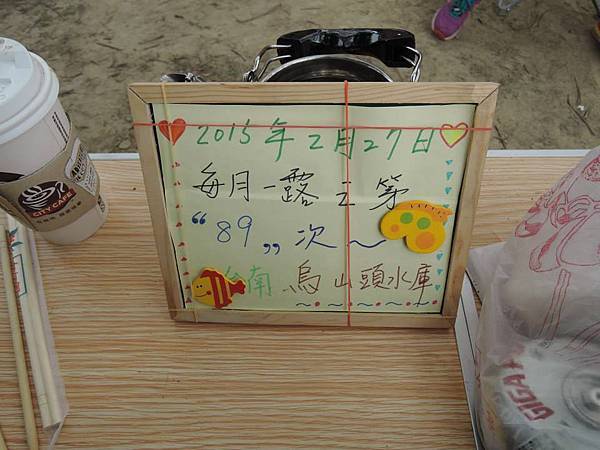 2015年2月27日
每月一露之第
“89„次~
台南 烏山頭水庫
CITY CAFE
GIGA